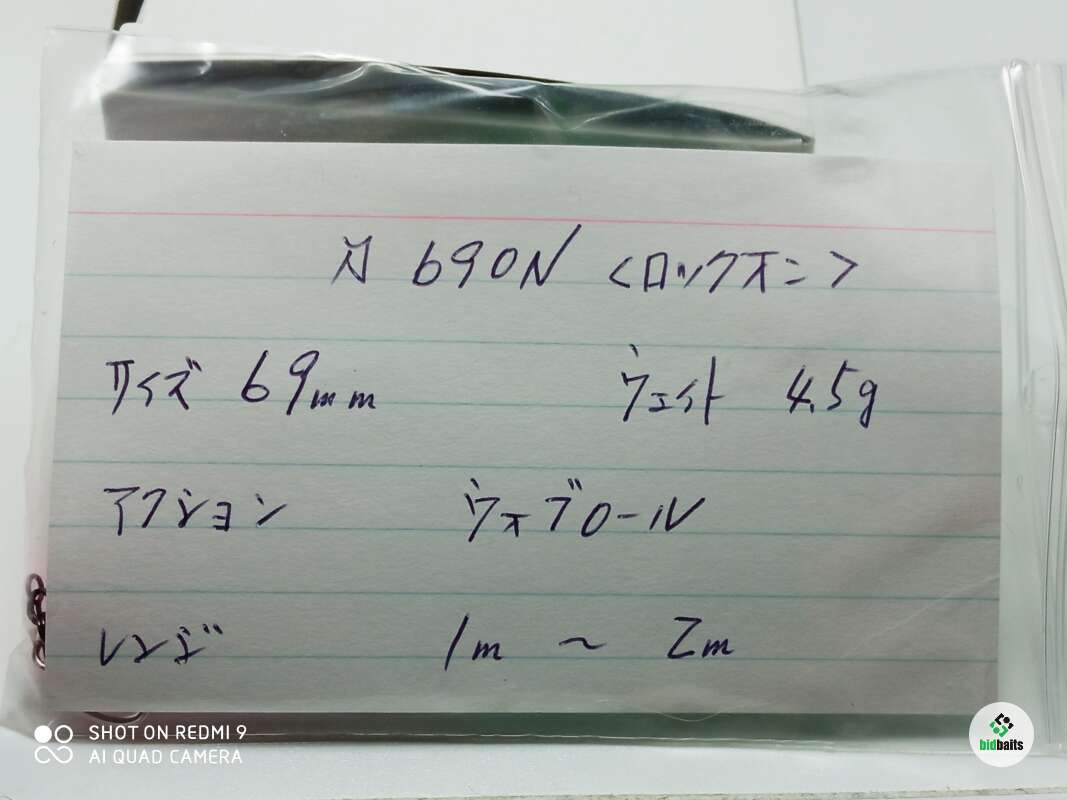 690N <ロックオン>
サイズ 69mm ウェイト 4.5g
アクション ウォブロール
レンジ 1m ~ 2m
SHOT ON REDMI 9
AI QUAD CAMERA
bidbaits